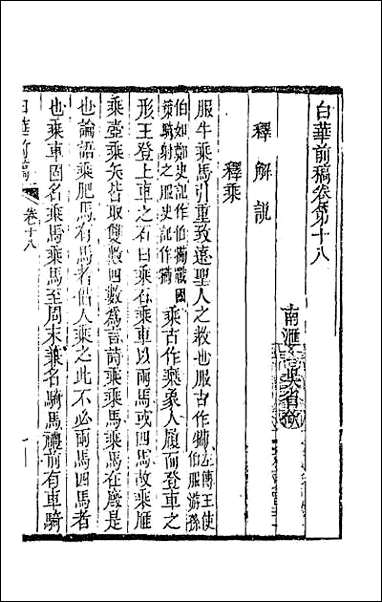 白華前稿卷第十八
南滙吳省欽
釋解說
釋乘
服牛乘馬引重致遠聖人之教也服古作犕左傳王使伯服游孫
伯如鄭史記作伯犕戰國策騎射之服史記作犕乘古作椉象人履而登車之
形王登上車之石曰乘石乘車以兩馬或四馬故乘雁
乘壺乘矢皆取雙數四數為言詩乘乘馬乘馬在廄是
也論語乘肥馬有馬者借人乘之此不必兩馬四馬者
也乘車固名乘馬乘馬至周末葉名騎馬禮前有車騎
白華前稿 卷十八 一